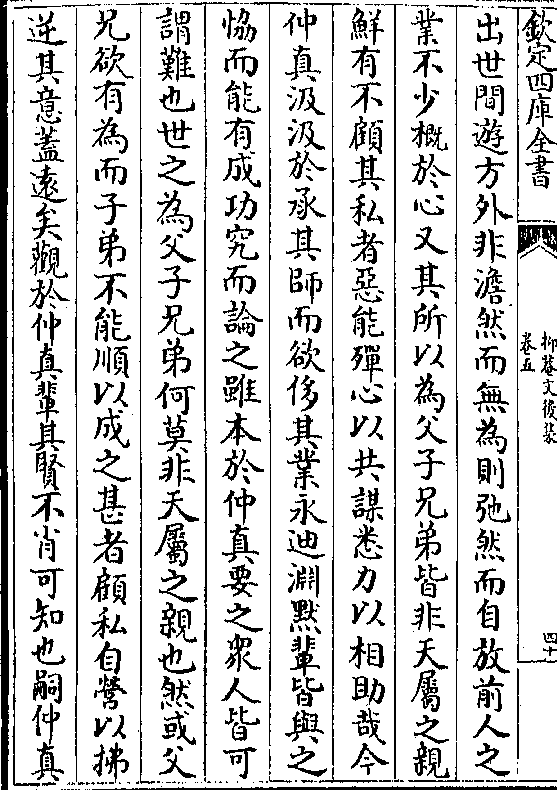 欽定四庫全書
卷五
四十
出世間遊方外非澹然而無為則弛然而自放前人之
業不少概於心又其所以為父子兄弟皆非天屬之親
鮮有不顧其私者惡能殫心以共謀悉力以相助哉今
仲真汲汲於承其師而欲侈其業永迪淵默輩皆與之
恊而能有成功究而論之雖本於仲真要之衆人皆可
謂難也世之為父子兄弟何莫非天屬之親也然或父
兄欲有為而子弟不能順以成之甚者顧私自營以拂
逆其意蓋遠矣觀於仲真輩其賢不肖可知也嗣仲真